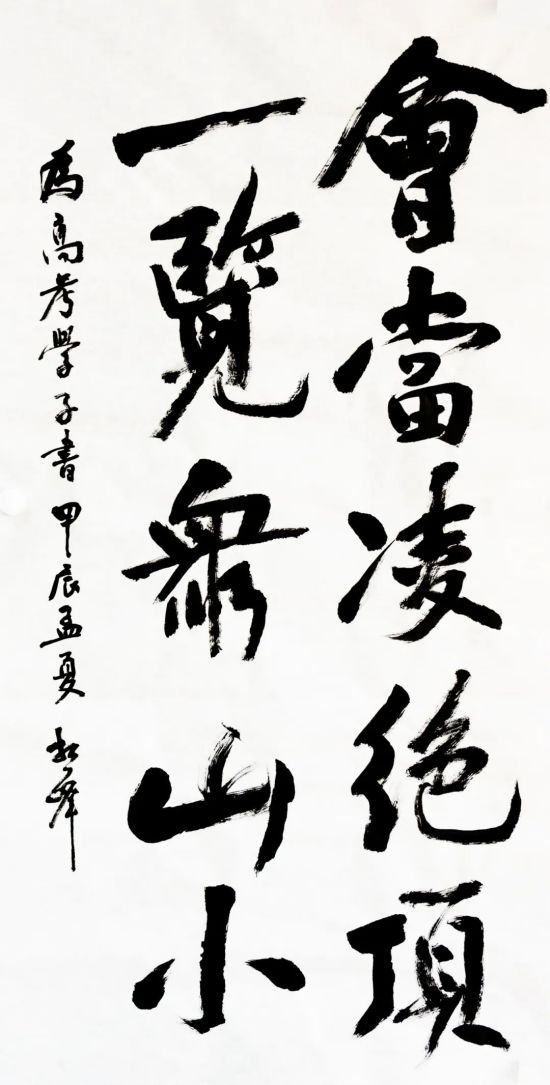 會當凌絕頂
一覽衆山小
為高考學子書甲辰孟夏